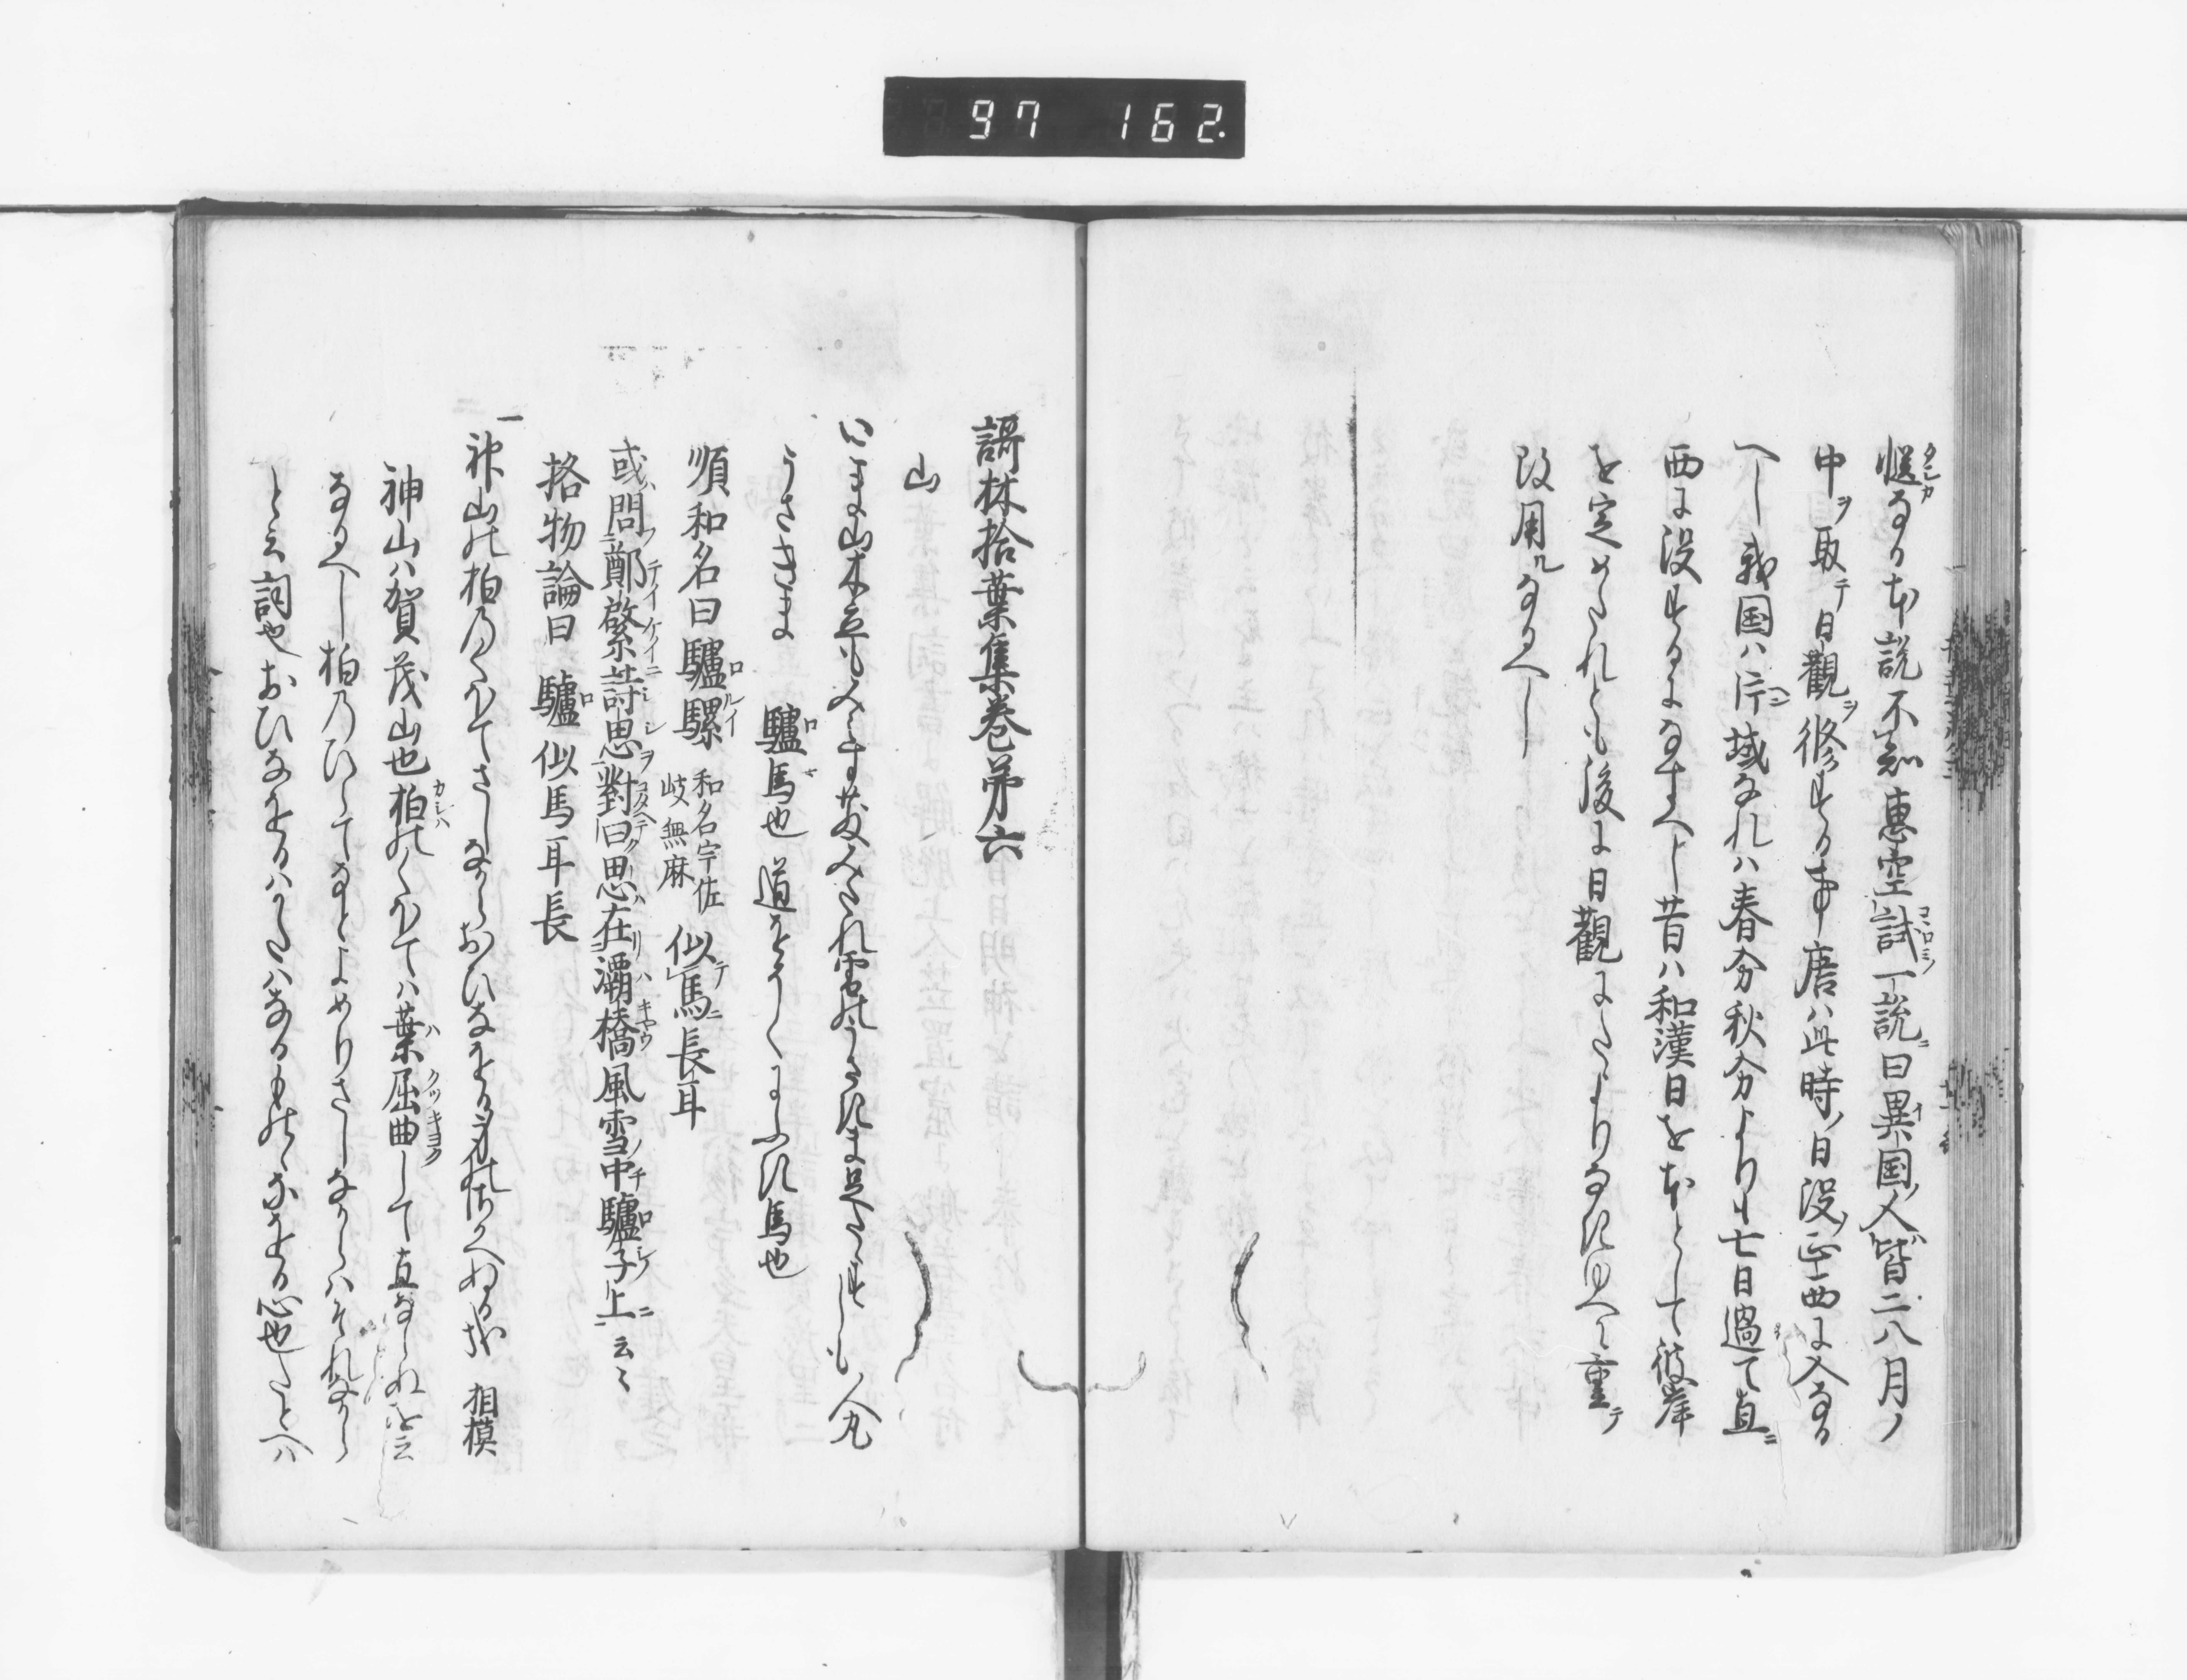 97 162.
慥なる本説不知惠空試一説曰異国人皆二八月ノ
中ヲ取テ日觀ヲ修する事唐ハ此時ノ日没ノ正西に入なる
へし我国ハ片域なれハ春分秋分よりも七日過て直ニ
西に没するになすへし昔ハ和漢日を本として彼岸
を定めたれとも後に日觀にたよりなきゆへに重テ
改用ルなるへし
謌林拾葉集巻第六
山
いこま山木立もみえす落みたれ雪のうさきま足たゝすしも 人丸
うさきま 驢馬也 道をとくに馬也
順和名曰驢騾 和名宇佐岐無麻 似馬長耳
或問鄭綮詩思對曰思在灞橋風雪中驢子上 云々
挌物論曰 驢似馬耳長
一 神山の柏のくほてさしなからおひなをるみのさかへぬるかな 相模
神山ハ賀茂山也柏のくほてハ葉屈曲して直ならぬを云
なるへし柏乃ひらてなとよめりさしなからハそれなから
と云詞也おひなをるハかたハなるものゝなをる心也たとへハ